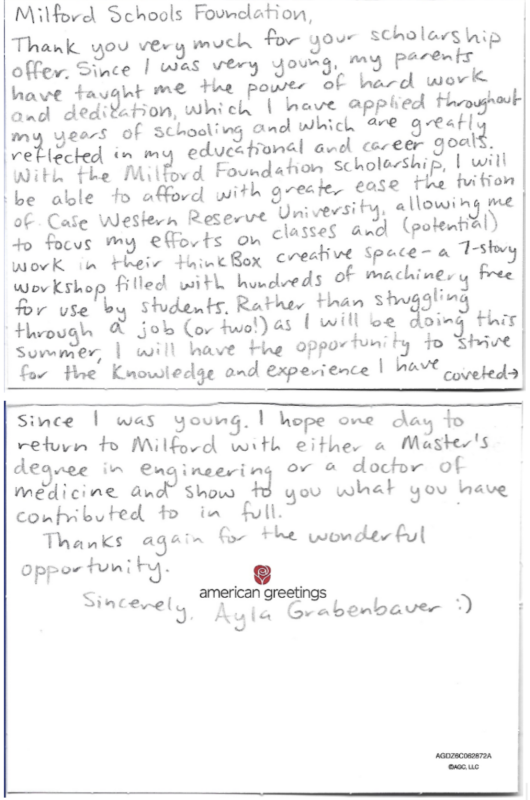 Milford Schools Foundation,
Thank you very much for your scholarship
offer. Since I was very young, my parents
have taught me the power of hard work
and dedication, which I have applied throughout
my years of schooling and which are greatly
reflected in my educational and career goals.
With the Milford Foundation scholarship, I will
be able to afford with greater ease the tuition
of Case Western Reserve University, allowing me
to focus my efforts on classes and (potential)
work in their thinkBox creative space - a 7-story
workshop filled with hundreds of machinery free
for use by students. Rather than struggling
through a job (or two!) as I will be doing this
summer, I will have the opportunity to strive
for the knowledge and experience I have coveted→
since I was young. I hope one day to
return to Milford with either a Master's
degree in engineering or a doctor of
medicine and show to you what you have
contributed to in full.
Thanks again for the wonderful
opportunity.
american greetings
Sincerely, Ayla Grabenbauer :)
AGDZ6C062872A
©AGC, LLC